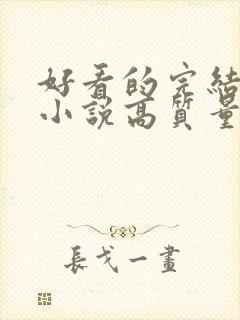 好看的完結
小說高質量
長戈一畫